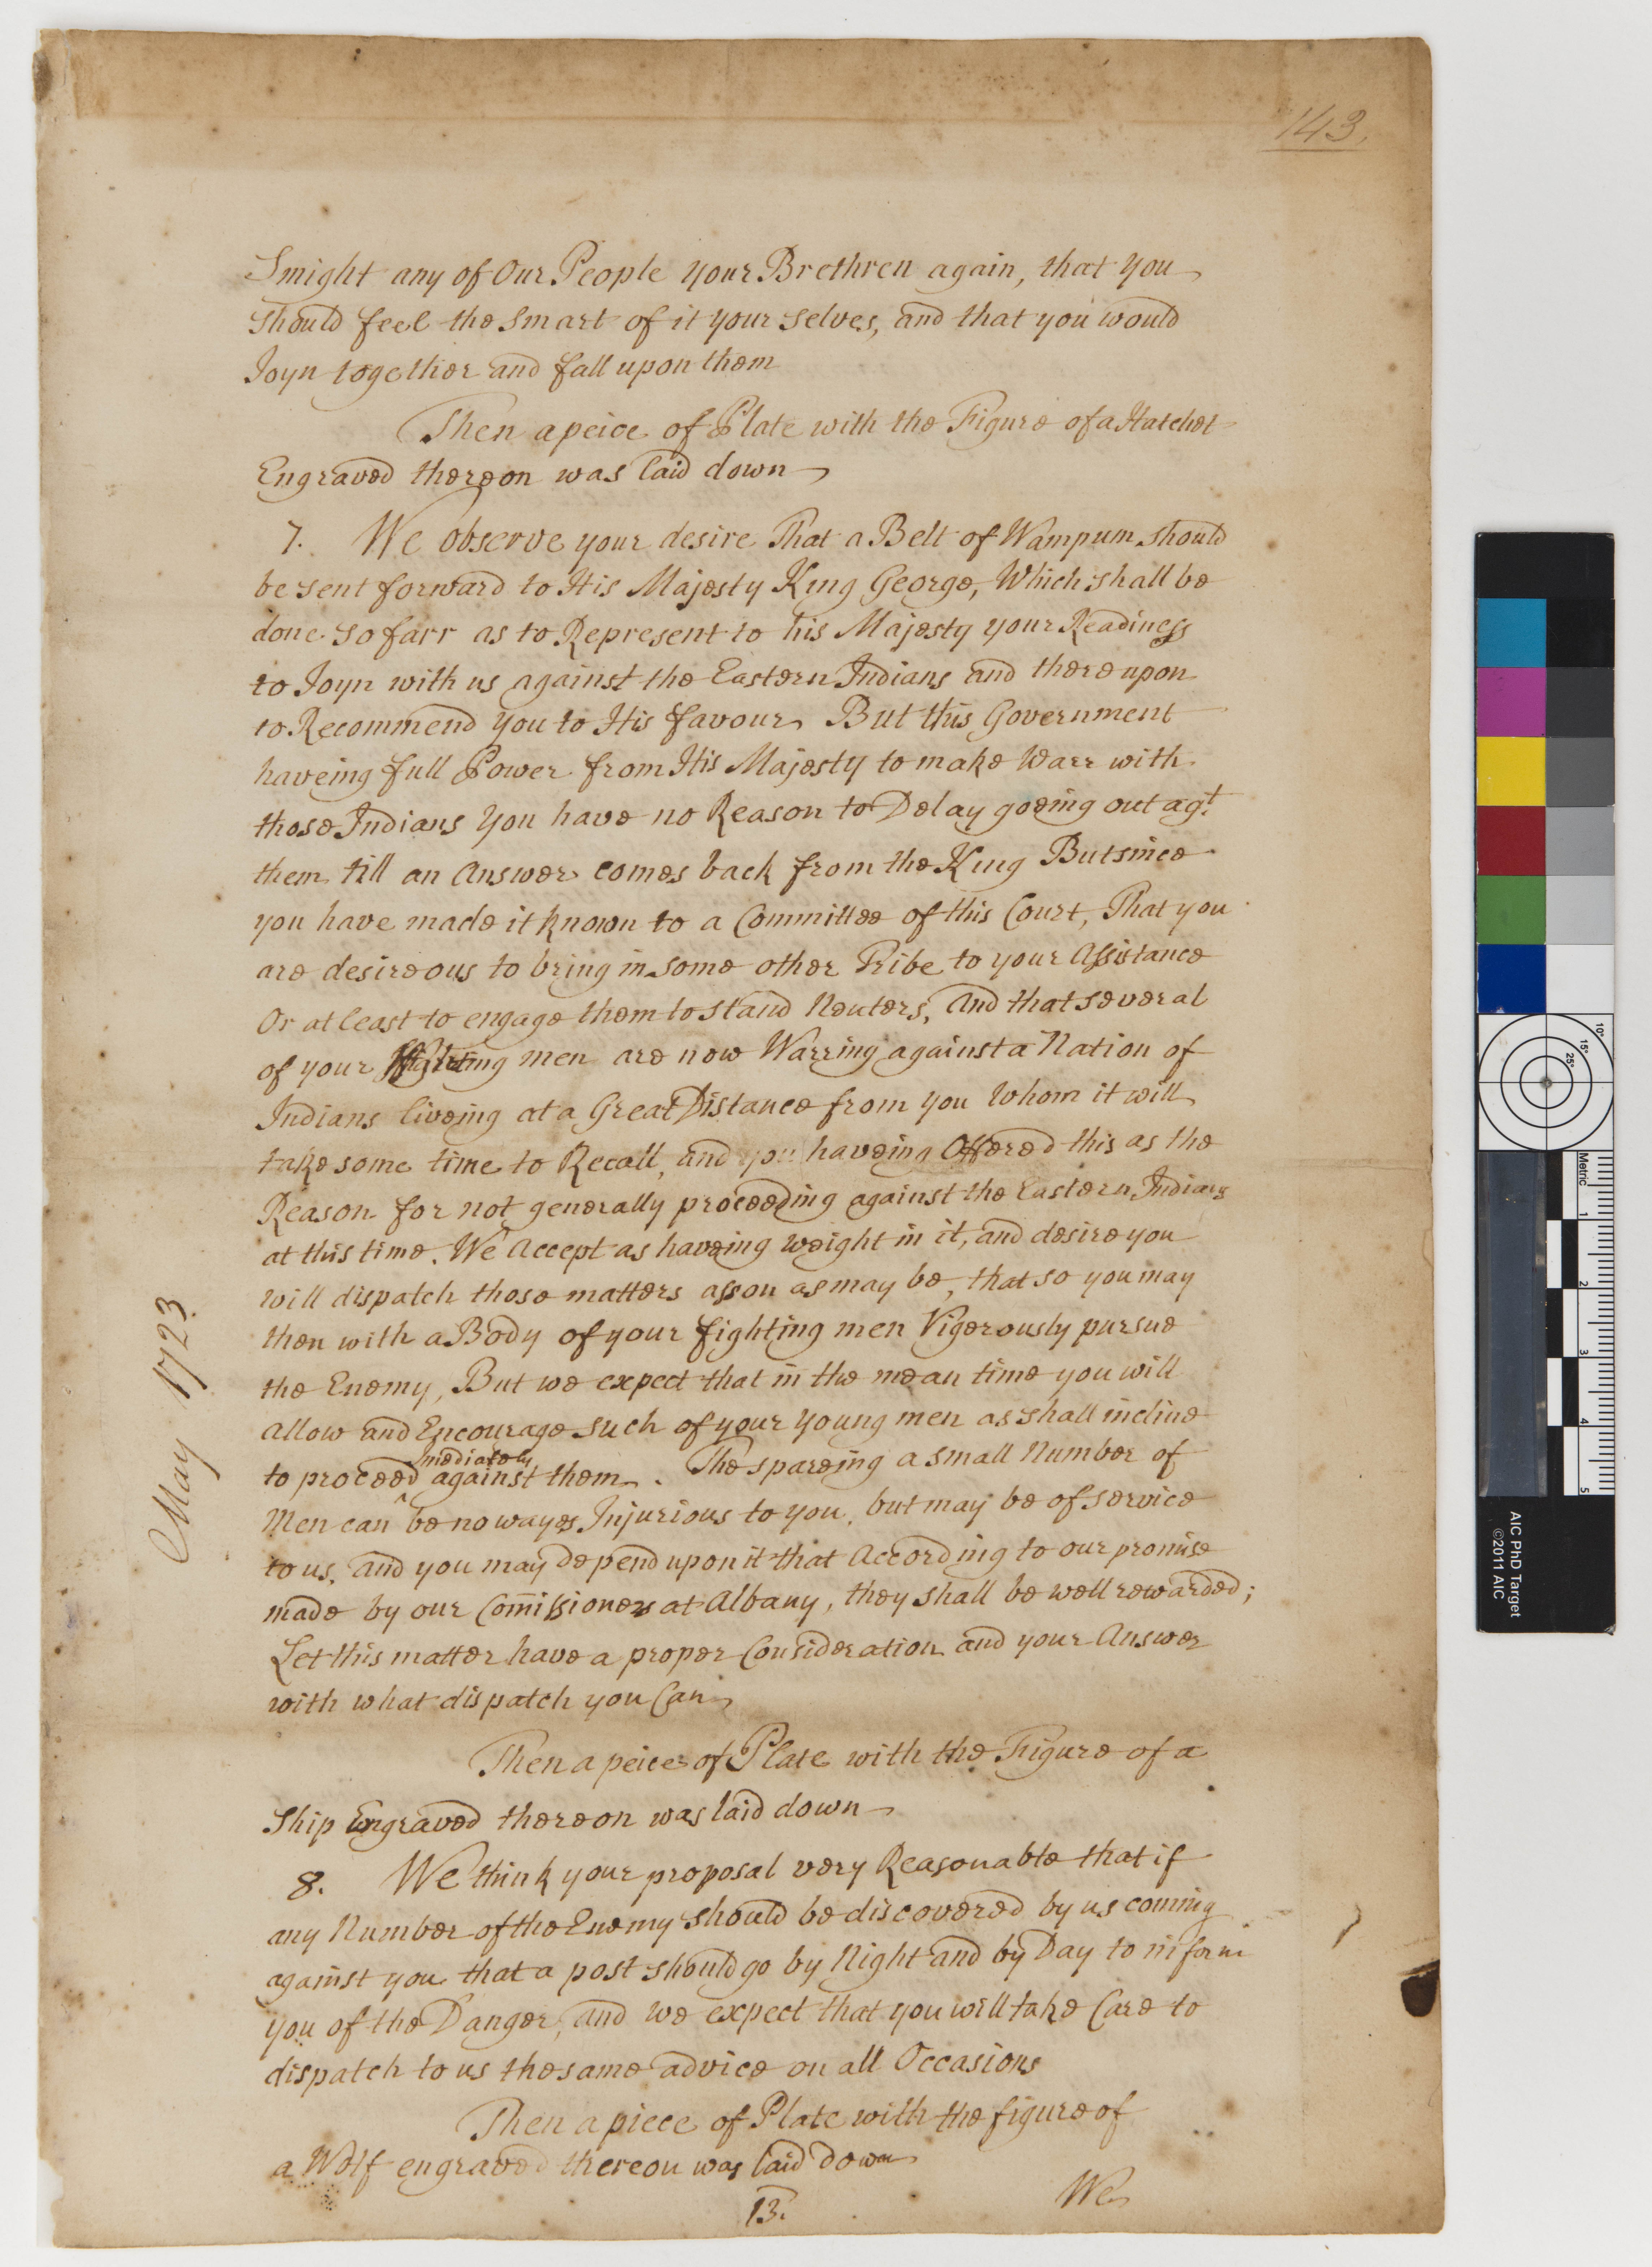 143.
Smight any of Our People your Brethren again, that you
should feel the Smart of it your selves, and that you would
Joyn together and fall upon them
Then a peice of Plate with the Figure of a Hatchet
Engraved thereon was laid down
7. We observe your desire That a Belt of Wampum should
be sent forward to His Majesty King George, Which shall be
done so farr as to Represent to his Majesty your Readiness
to Joyn with us against the Eastern Indians and thereupon
to Recommend you to His favour, But this Government
haveing full Power from His Majesty to make Warr with
those Indians You have no Reason to Delay goeing out agt.
them till an Answer comes back from the King But since
you have made it known to a Committee of this Court, That you
are desireous to bring in some other Tribe to your Assistance
Or at least to engage them to stand Neuters, and that several
of your fighting men are now Warring against a Nation of
Indians liveing at a Great Distance from you Whom it will
take some time to Recall, and you haveing Offered this as the
Reason for not generally proceeding against the Eastern Indians
at this time. We Accept as haveing weight in it, and desire you
will dispatch those matters assoon as may be, that so you may
then with a Body of your fighting men Vigerously pursue
the Enemy, But we expect that in the mean time you will
allow and Encourage such of your young men as shall incline
to proceed Imediately against them. The spareing a small Number of
Men can be no wayes Injurious to you, but may be of service
to us, and you may depend upon it that According to our promise
made by our Comissioners at Albany, they shall be well rewarded;
Let this matter have a proper Consideration and your Answer
with what dispatch you Can,
Then a peice of Plate with the Figure of a
Ship Engraved thereon was laid down
8. We think your proposal very Reasonable that if
any Number of the Enemy should be discovered by us coming
against you that a post should go by Night and by Day to inform
you of the Danger, and we expect that you will take Care to
dispatch to us the same advice on all Occasions
Then a piece of Plate with the figure of
a Wolf engraved thereon was laid Down
13.
We
May 1723
10°
15°
25°
Metric
1
2
3
4
5
AIC PhD Target
©2011 AIC